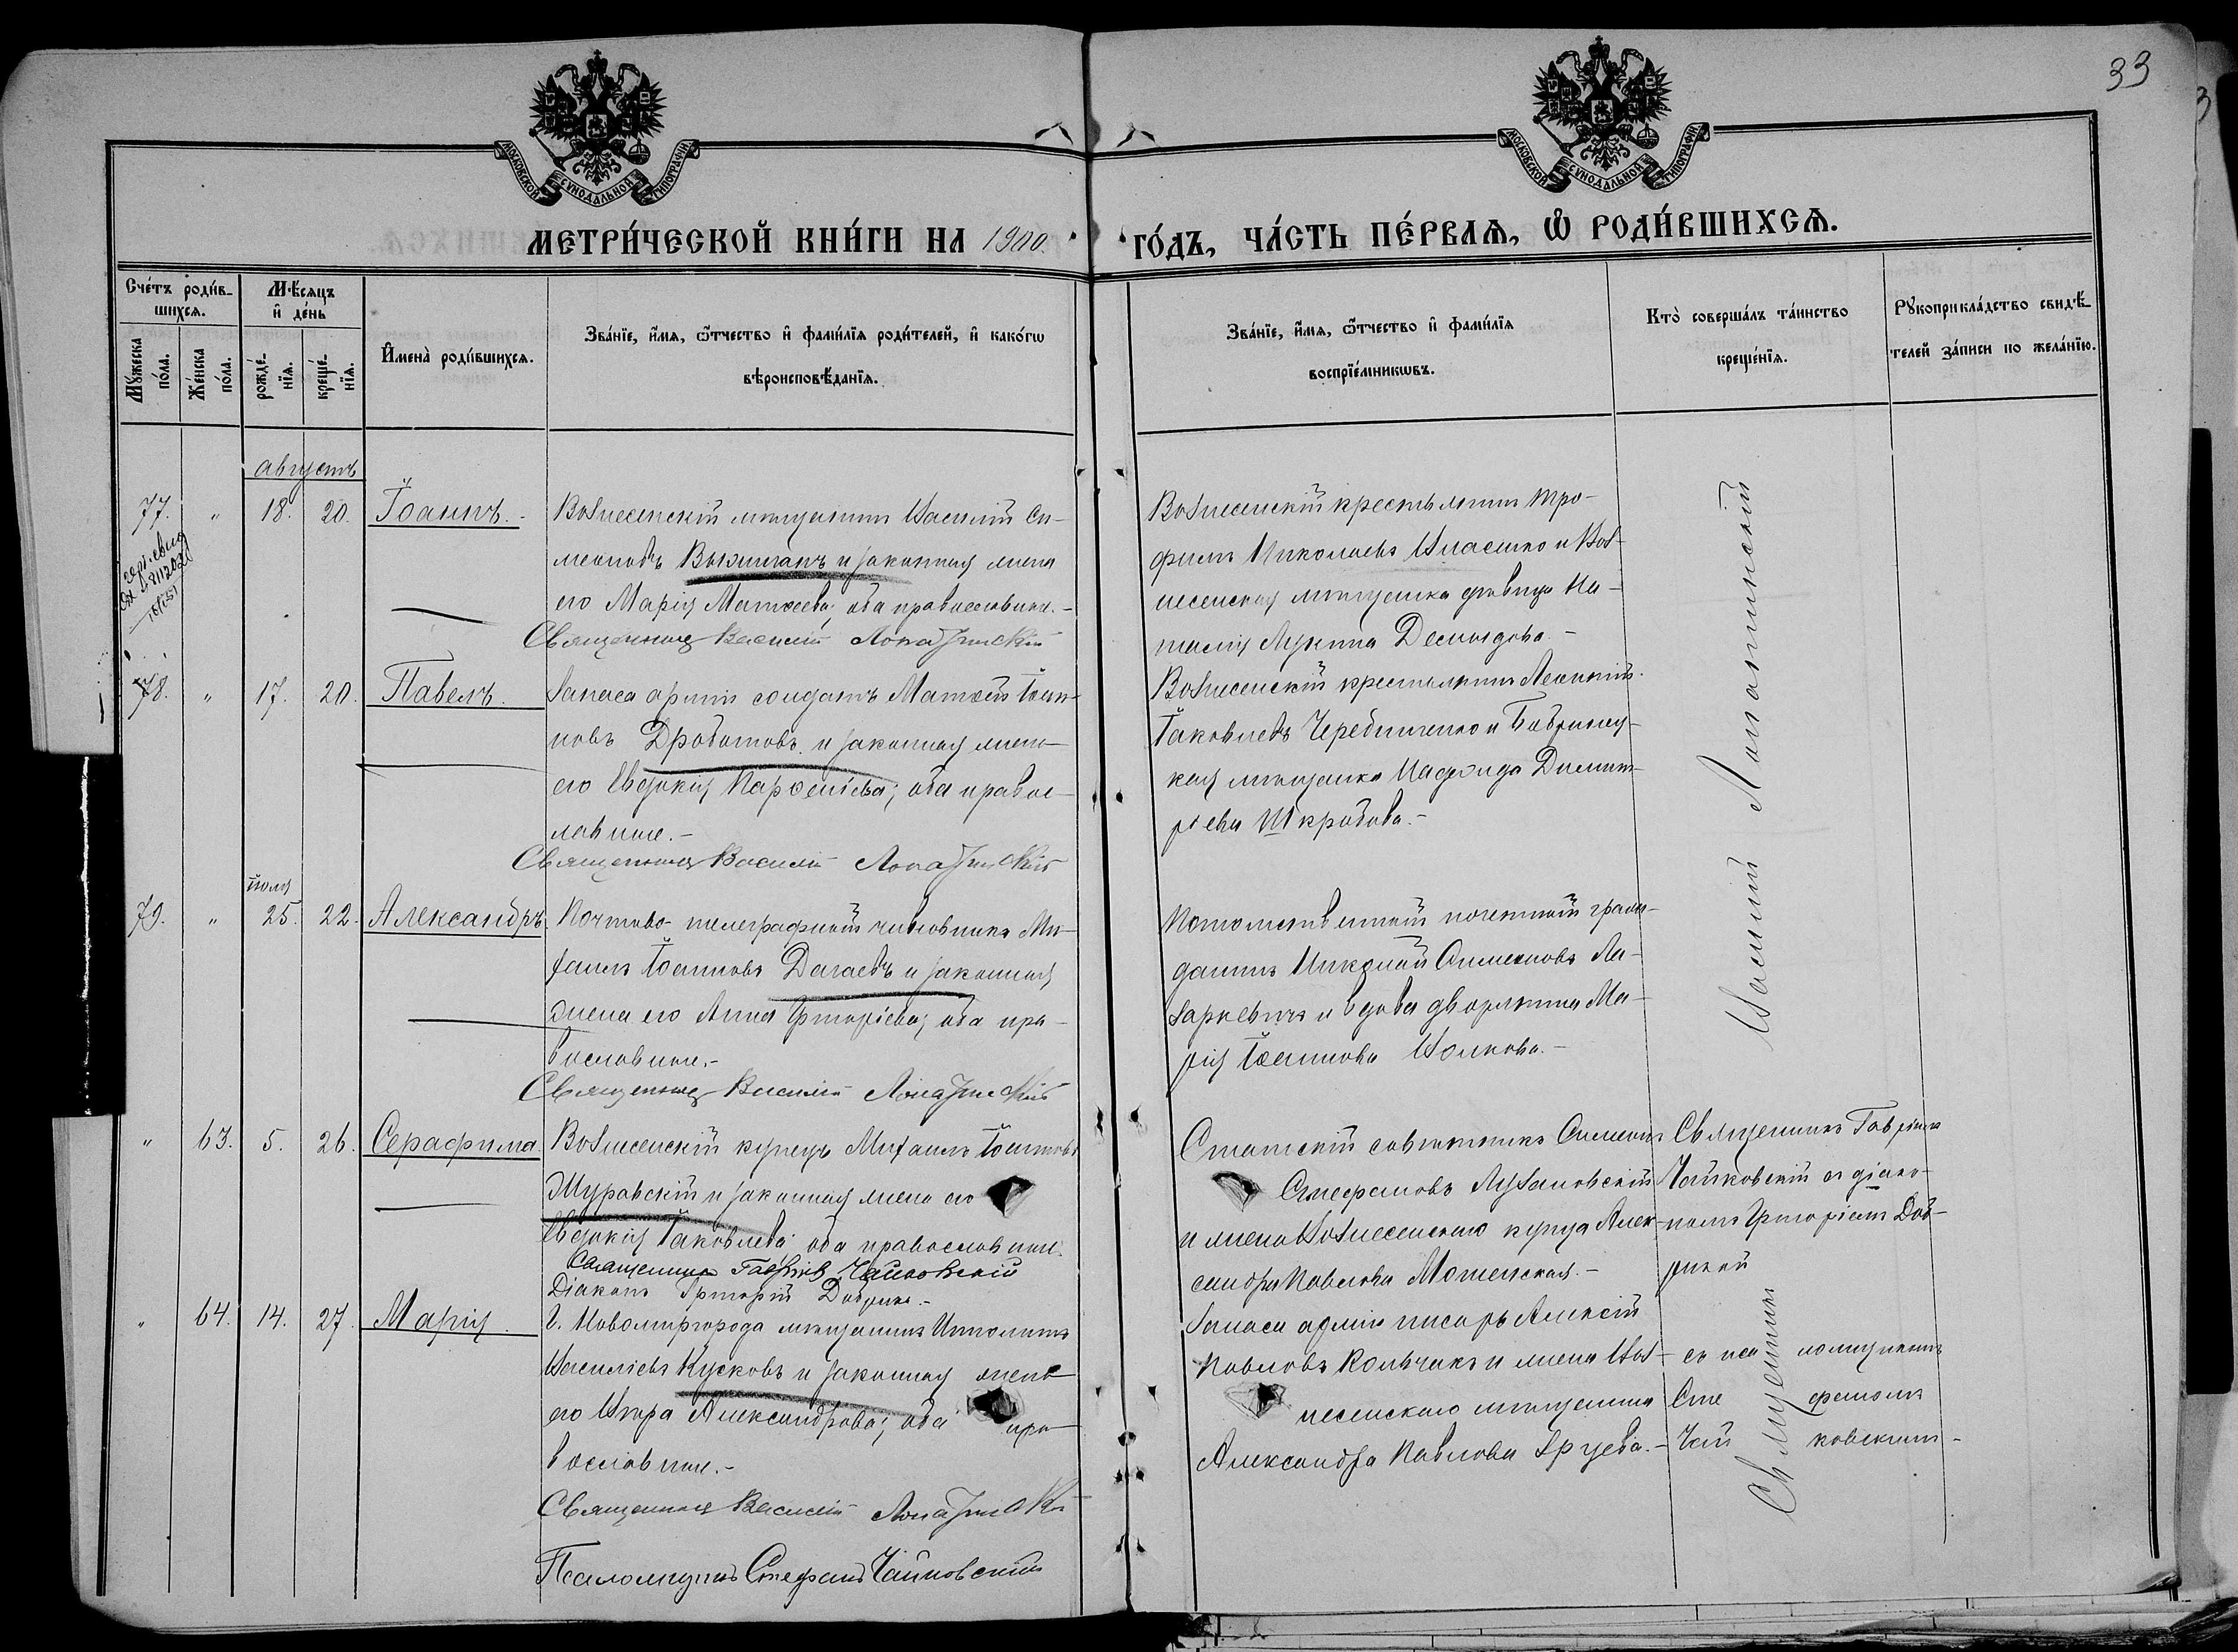 33
МОСКОВСКОЙ СѴНОДАЛЬНОЙ ТИПОГРАФІИ
МОСКОВСКОЙ СѴНОДАЛЬНОЙ ТИПОГРАФІИ
МЕТРИ́ЧЕСКОЙ КНИ́ГИ НА 1900.
ГО́ДЪ, ЧА́СТЬ ПЕ́РВАѦ, Ѡ҆ РОДИ́ВШИХСѦ.
Сче́тъ роди́в-
шихсѧ.
Мꙋ́жеска по́ла.
Же́нска по́ла.
Мѣ́сяцъ
и҆ де́нь
рожде́-
нїѧ.
креще́-
нїѧ.
И҆мена̀ роди́вшихсѧ.
Зва́нїе, и҆́мѧ, ѻ҆́тчество и҆ фамі́лїѧ роди́телей, и҆ како́гѡ
вѣроисповѣ́данїѧ.
Зва́нїе, и҆́мѧ, ѻ҆́тчество и҆ фамі́лїѧ
воспрїе́мникѡвъ.
Кто̀ соверша́лъ та́инство
креще́нїѧ.
Рꙋкоприкла́дство свидѣ́-
телей за́писи по жела́нїю.
августъ
77. " 18. 20. Іоаннъ.
Вознесенскій мѣщанинъ Василій Си-
меоновъ и законная жена
его Марія Матѳеева; оба православные.-
Священникъ Василій Лопатинскій
Вознесенскій крестьянинъ Тро-
фимъ Николаевъ Власенко и Воз-
несенская мѣщанка дѣвица На-
талія Лукина Демидова.-
78. " 17. 20. Павелъ.
Запаса арміи солдатъ Матѳей Іоан-
новъ Дроботовъ и законная жена
его Евдокія Парѳеніева; оба правос-
лавные.-
Священникъ Василій Лопатинскій
Вознесенскій крестьянинъ Леонтій
Іаковлевъ Чередниченко и Бобринец-
кая мѣщанка Надежда Димит-
ріева Шкрабова.-
іюля
79. " 25. 22. Александръ
Почтово-телеграфный чиновникъ Ми-
хаилъ Іоанновъ Дагаевъ и законная
жена его Анна Григоріева; оба пра-
вославные.-
Священникъ Василій Лопатинскій
Потомственный почетный граж-
данинъ Николай Симеоновъ Ла-
заркевичъ и вдова дворянина Ма-
рія Іоаннова Волкова.-
Василій Лопатинскій
" 63. 5. 26. Серафима.
Вознесенскій купецъ Михаилъ Іоанновъ
Журавскій и законная жена его
Евдокія Іаковлева; оба православные.
Священникъ Гавріилъ Чайковскій
Діаконъ Григорій
Статскій совѣтникъ Симеонъ
Стефановъ Лузановскій
и жена Вознесенскаго купца Алек-
сандра Павлова
Священникъ Гавріилъ
Чайковскій съ діако-
номъ Григоріемъ
" 64. 14. 27. Марія.
Г. Новомиргорода мѣщанинъ Ипполитъ
Василіевъ Кусковъ и законная жена
его Вѣра Александрова; оба пра-
вославные.-
Священникъ Василій Лопатинскій
Псаломщикъ Стефанъ Чайковскій
Запаса арміи писарь Алексій
Павловъ Кольчикъ и жена Воз-
несенскаго мѣщанина
Александра Павлова
Священникъ
съ псаломщикомъ
Стефаномъ
Чайковскимъ-